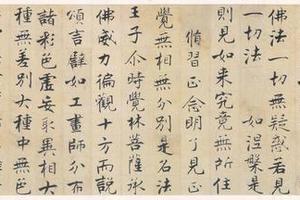 佛法一切無疑惑若見
一切法 如涅槃是
則見如来究竟無所住
脩習正念明了見正
覺無相無分別是名法
王子尒時覺林菩薩承
佛威力徧觀十方而說
頌言譬如工畫師分布
諸彩色虛妄取異相大
種無差別大種中無色